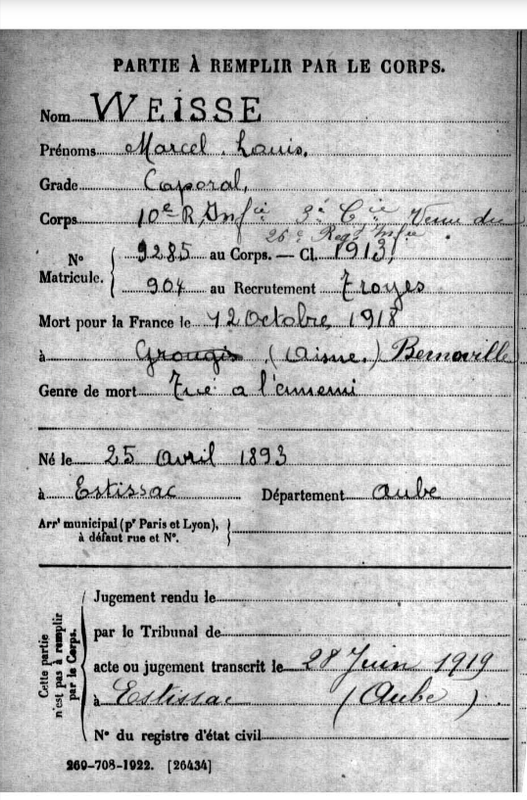 PARTIE À REMPLIR PAR LE CORPS.
Nom WEISSE
Prénoms Marcel Louis.
Grade Caporal,
Corps 10e R. Infie 3e Cie Venu du
26e Reg. Infie
No Matricule. 9285 au Corps. — Cl. 1913
904 au Recrutement Troyes
Mort pour la France le 12 Octobre 1918
à Grougis (Aisne.) Bernoville
Genre de mort Tué a l'ennemi
Né le 25 Avril 1893
à Estissac Département Aube
Arrt municipal (pr Paris et Lyon),
à défaut rue et No.
Cette partie
n'est pas à remplir
par le Corps.
Jugement rendu le
par le Tribunal de
acte ou jugement transcrit le 28 Juin 1919
à Estissac (Aube)
No du registre d'état civil
269-708-1922. [26434]